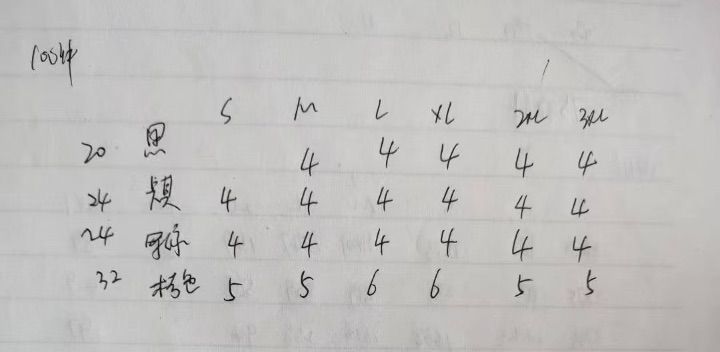 100件
S M L XL 2XL 3XL
20 黑 4 4 4 4 4
24 4 4 4 4 4 4
24 4 4 4 4 4 4
32 色 5 5 6 6 5 5